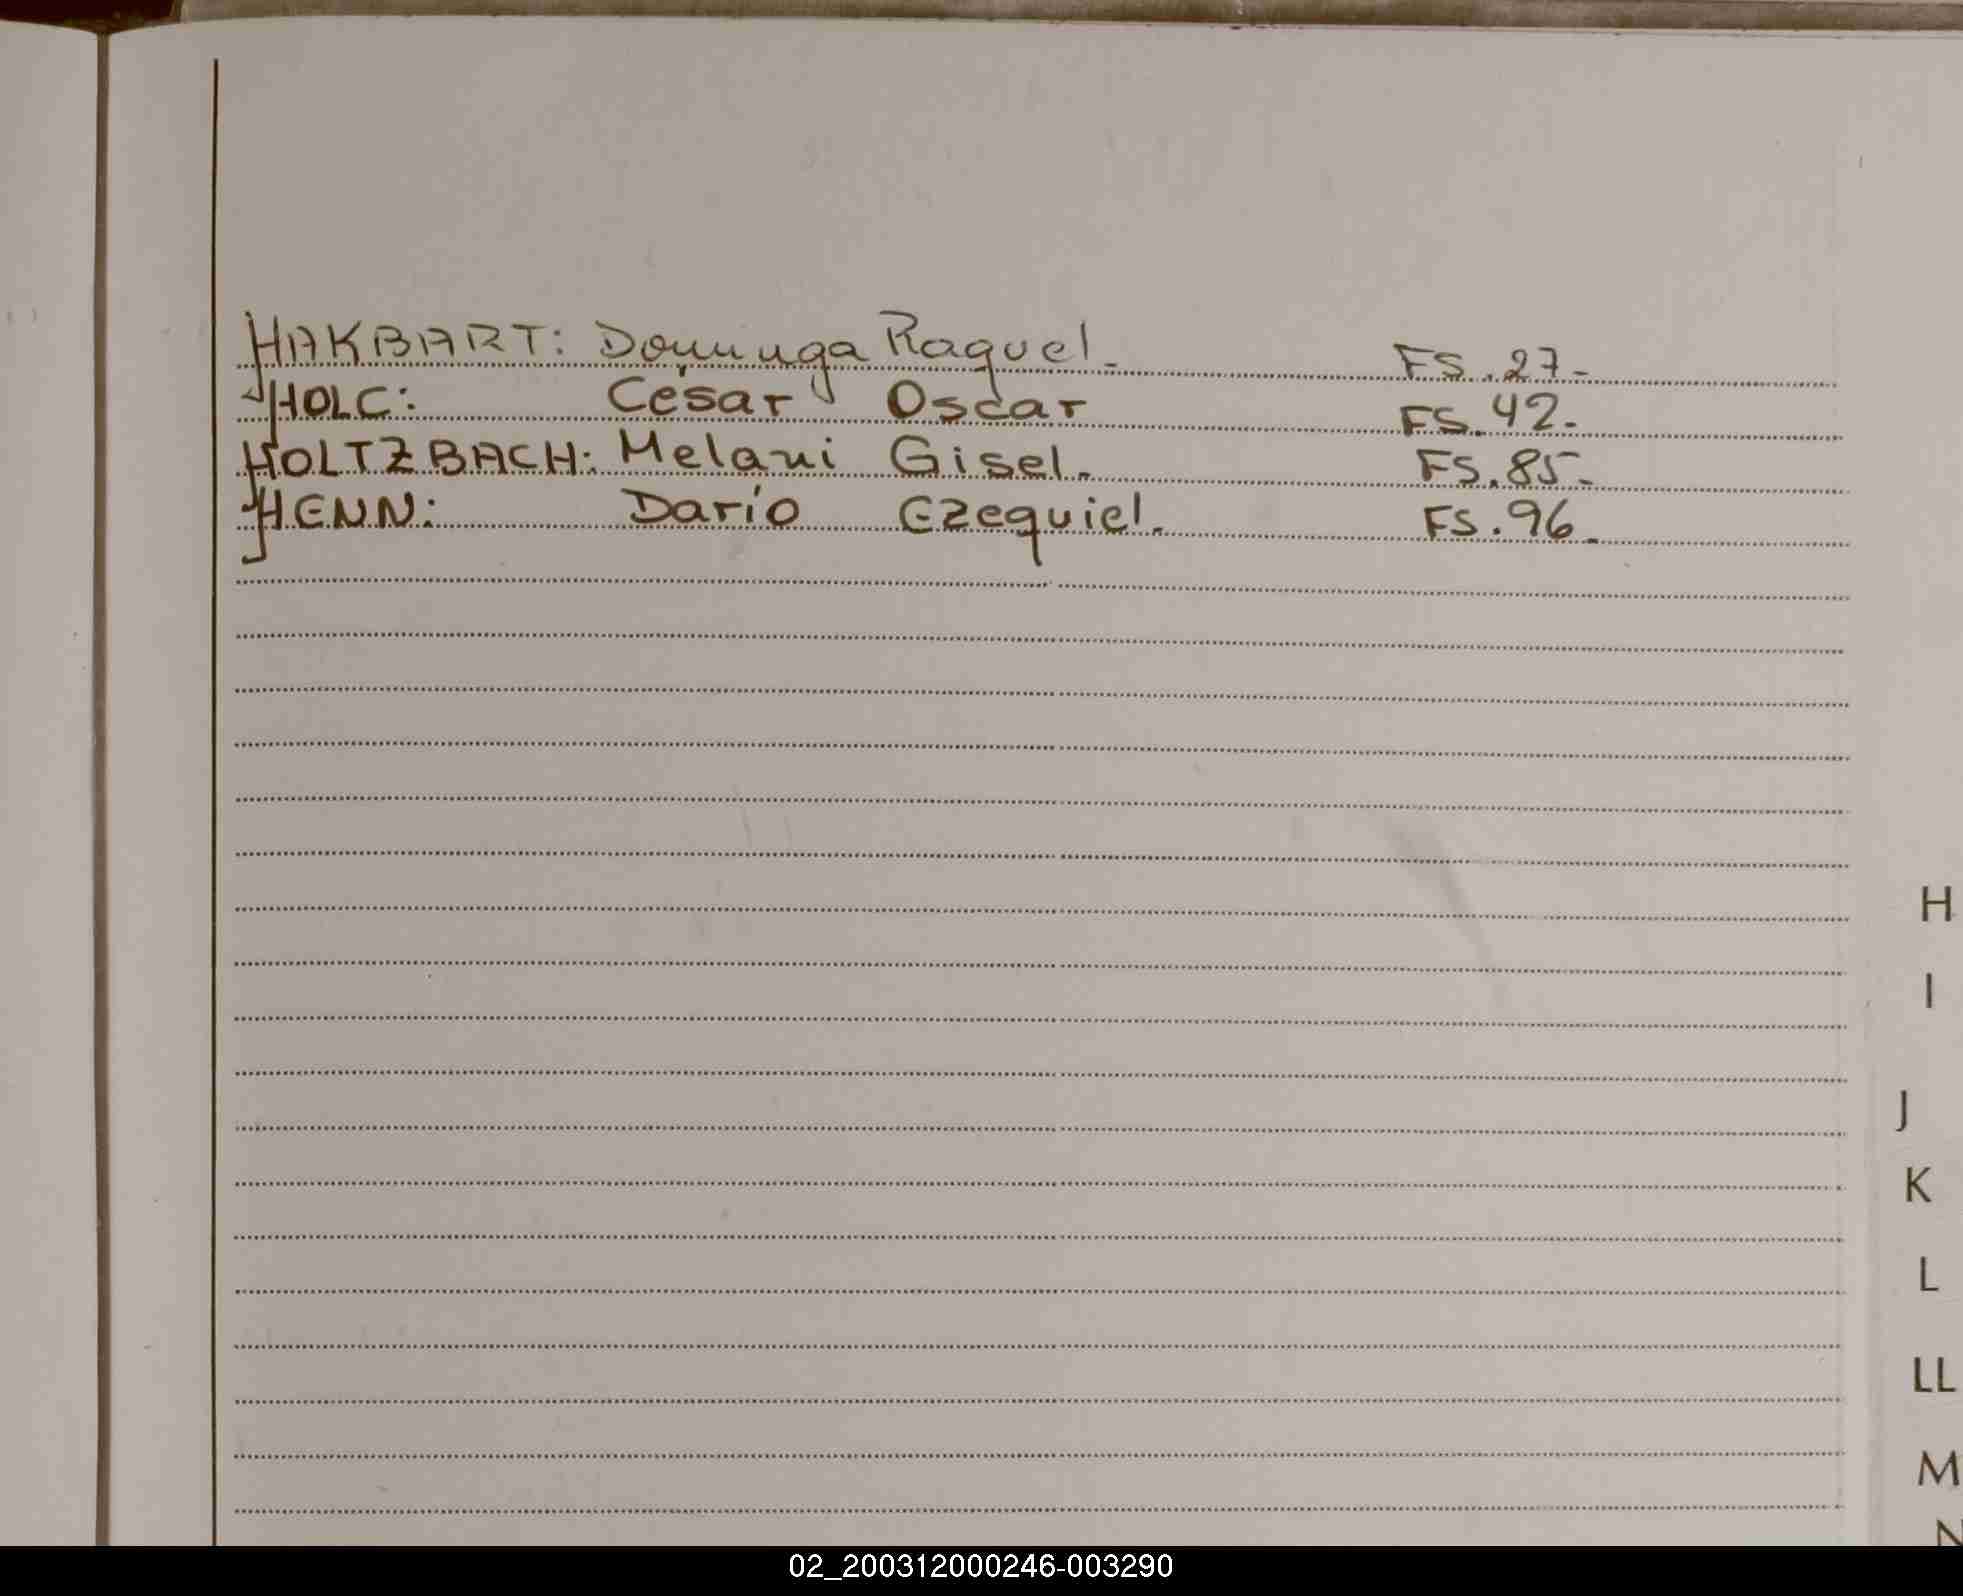 HAKBART: Dominga Raquel. FS. 27-
HOLC: César Oscar FS. 42-
HOLTZBACH: Melani Gisel. FS. 85-
HENN: Darío Ezequiel. FS. 96-
H
I
J
K
L
LL
M
N
02_200312000246-003290